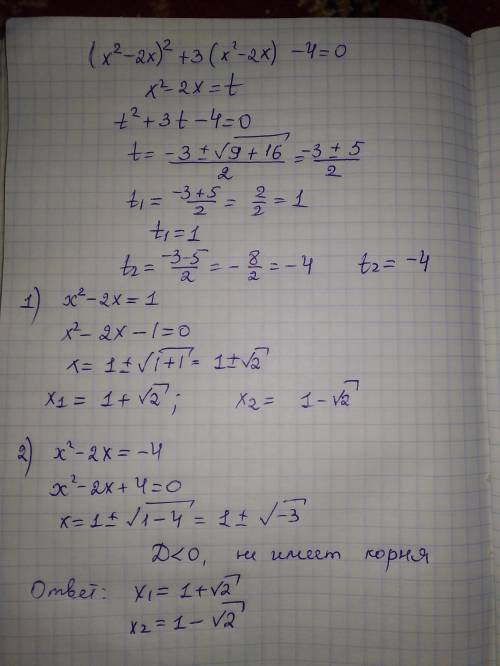 (x²-2x)²+3(x²-2x)-4=0
x²-2x=t
t²+3t-4=0
t= -3±√9+16/2 = -3±5/2
t₁= -3+5/2 = 2/2 = 1
t₁=1
t₂= -3-5/2 = -8/2 = -4 t₂= -4
1) x²-2x=1
x²-2x-1=0
x= 1±√1+1= 1±√2
x₁= 1+√2; x₂= 1-√2
2) x²-2x=-4
x²-2x+4=0
x=1±√1-4 = 1±√-3
D<0, не имеет корня
Ответ: x₁= 1+√2
x₂= 1-√2